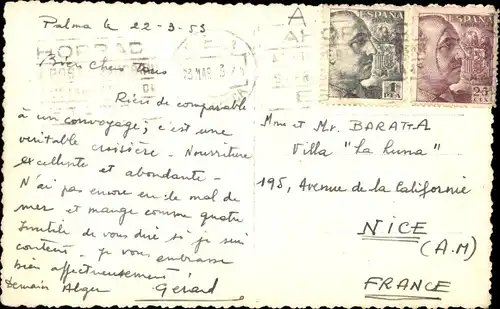 Palma le 22-3-53
Bien Chers Tous
Rien de comparable
à un convoyage ; c'est une
véritable croisière. Nourriture
excellente et abondante -
N'ai pas encore eu le mal de
mer et mange comme quatre
Inutile de vous dire si je suis
content. je vous embrasse
bien affectueusement
demain Alger Gérard
ESPAÑA
ESPAÑA
PTA
CTS
Mme et Mr. BARATTA
Villa "La Luna"
195, Avenue de la Californie
NICE
(A.M)
FRANCE